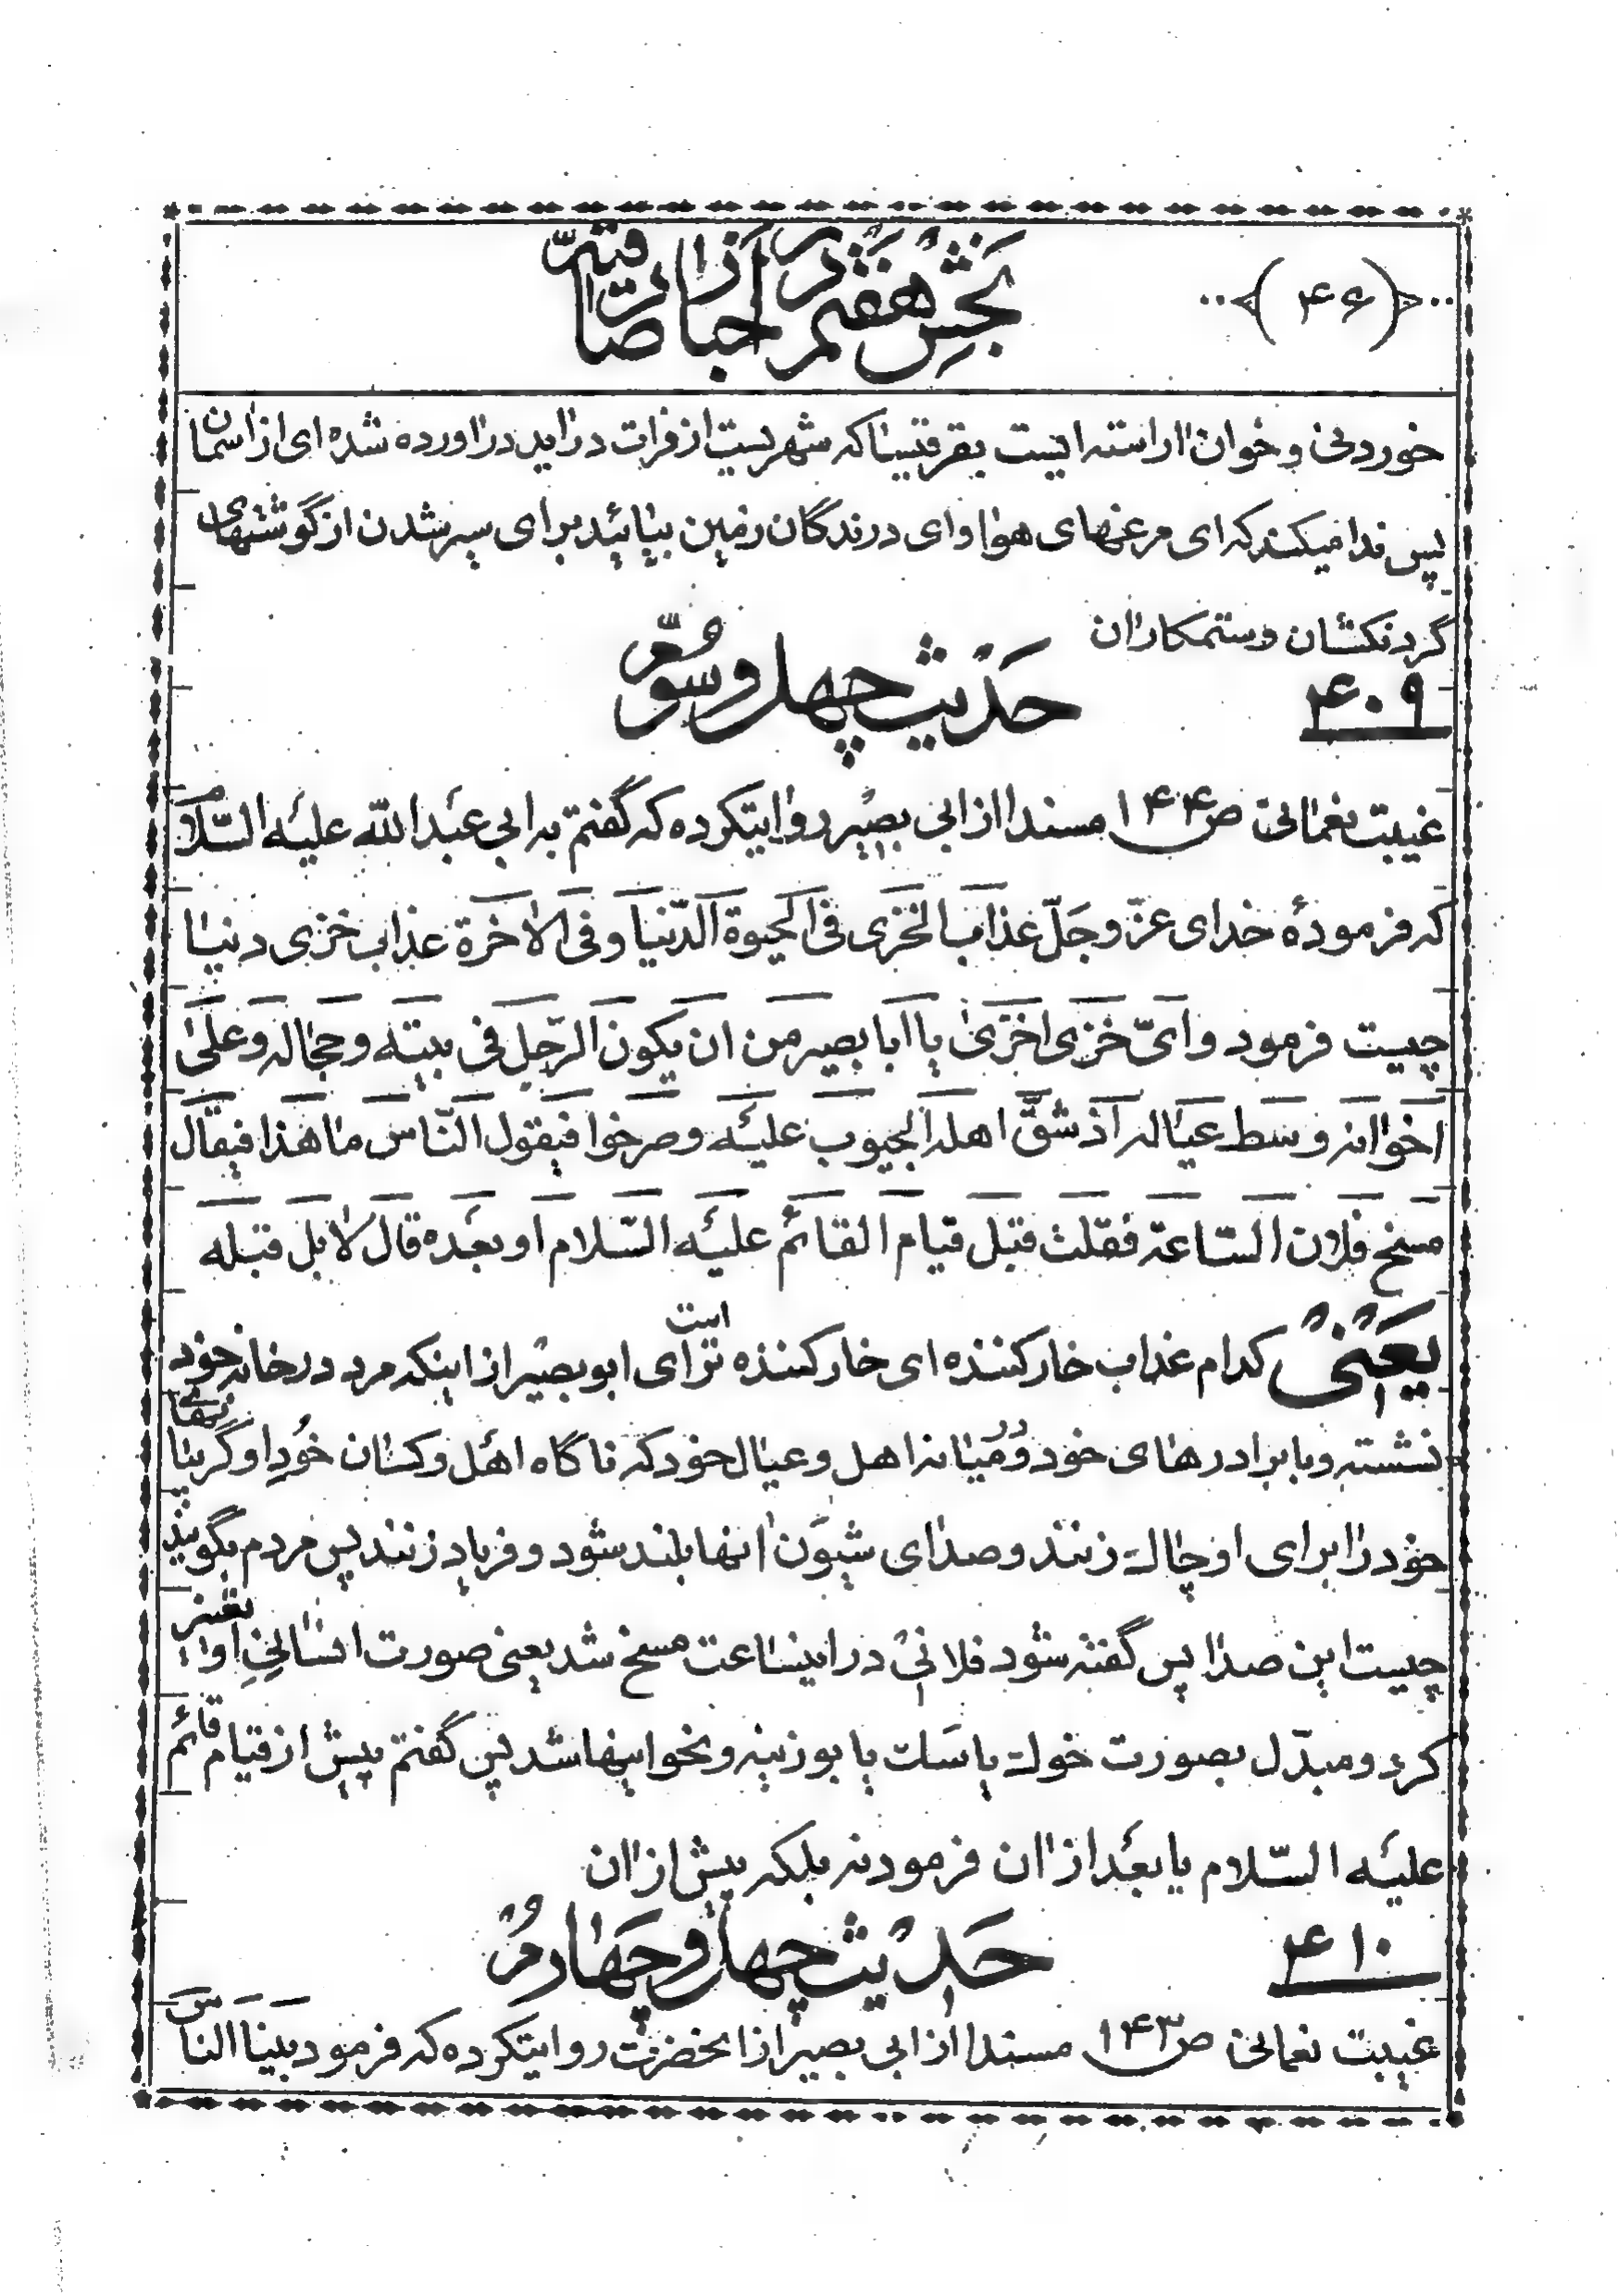 (۴۶)
بخش هفتم در اخبار از صادقیّه
خوردنی و خوان اراسته ایست بقرقیسا که شهریست از فرات در اید دراورده شده ای از اسمان
پس ندا میکند که ای مرغهای هوا و ای درندگان زمین بیائید برای سیر شدن از گوشتهای
گردنکشان و ستمکاران
۴۰۹ حدیث چهل و سوّم
غیبت نعمانی ص ۱۴۴ مسندا از ابی بصیر روایتکرده که گفتم به ابی عبد الله علیه السّلام
که فرمودهٔ خدای عزّ وجَلّ عذاب الخزی فی الحیوة الدّنیا وفی الاخرة عذاب خزی دنیا
چیست فرمود وایّ خزی اخزیٰ یا ابا بصیر من ان یکون الرّجل فی بیته وحجاله وعلیٰ
اخوانه وسط عیاله اذ شقّ اهله الجیوب علیه وصرخوا فیقول النّاس ما هذا فیقال
مسخ فلان السّاعة فقلت قبل قیام القائم علیه السّلام او بعده قال لا بل قبله
یعنی کدام عذاب خارکننده ای خارکننده تر است ای ابو بصیر از اینکه مرد در خانه خود
نشسته و با برادرهای خود و در میانه اهل و عیال خود که ناگاه اهل و کسان خود او گریبانهای
خود را برای او چاک زنند و صدای شیون انها بلند شود و فریاد زنند پس مردم بگویند
چیست این صدا پس گفته شود فلانی در اینساعت مسخ شد یعنی صورت انسانی او تغییر
کرد و مبدّل بصورت خوک یا سک یا بوزینه و نحو اینها شد پس گفتم پیش از قیام قائم
علیه السّلام یا بعد از ان فرمود نه بلکه پیش از ان
۴۱۰ حدیث چهل و چهارم
غیبت نعمانی ص ۱۴۳ مسندا از ابی بصیر از انحضرت روایتکرده که فرمود بینا الناس